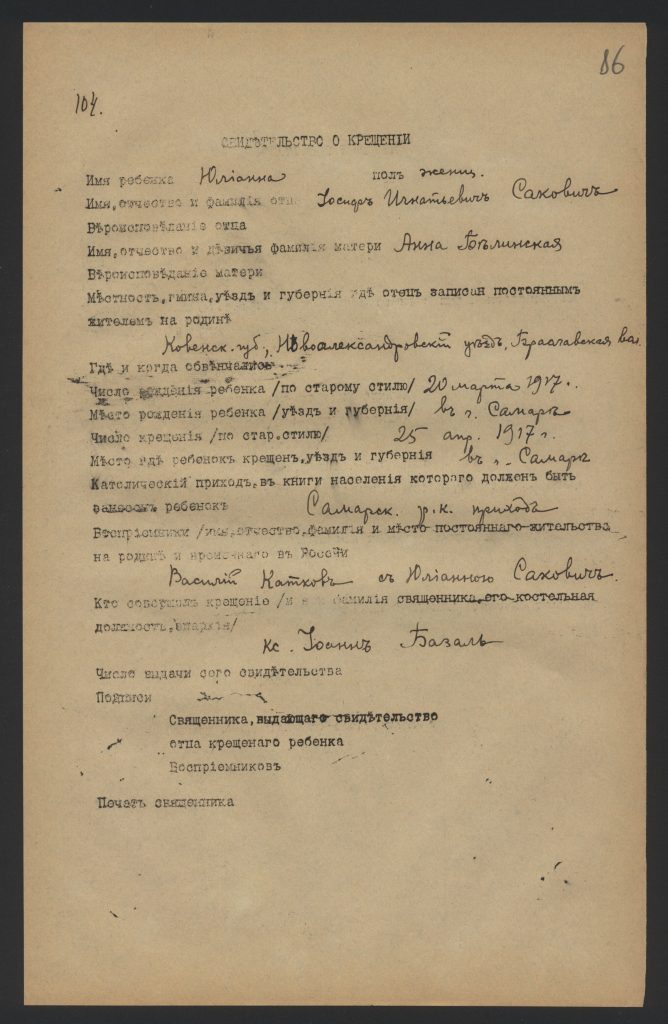 86
104.
СВИДѢТЕЛЬСТВО О КРЕЩЕНІИ
Имя ребенка Юліанна полъ женщ.
Имя, отчество и фамилія отца Іосифъ Игнатьевичъ Саковичъ
Вѣроисповѣданіе отца
Имя, отчество и дѣвичья фамилія матери Анна Бѣлинская
Вѣроисповѣданіе матери
Мѣстность, гмина, уѣздъ и губернія гдѣ отецъ записан постояннымъ
жителемъ на родинѣ
Ковенск. губ., Новоалександровскій уѣздъ, Браславская вол.
Гдѣ и когда обвѣнчались
Число рожденія ребенка /по старому стилю/ 20 марта 1917 г.
Мѣсто рожденія ребенка /уѣздъ и губернія/ въ г. Самарѣ
Число крещенія /по стар.стилю/ 25 апр. 1917 г.
Мѣсто гдѣ ребенокъ крещен, уѣздъ и губернія въ г. Самарѣ
Католическій приходъ, въ книги населенія котораго долженъ быть
занесенъ ребенокъ Самарск. р. к. приходъ
Воспріемники /имя, отчество, фамилія и мѣсто постояннаго жительства
на родинѣ и временнаго въ Россіи
Василій Катковъ съ Юліанною Саковичъ.
Кто совершилъ крещеніе /имя и фамилія священника, его костельная
должность, епархія/
Кс. Іоаннъ Базаль
Число выдачи сего свидѣтельства
Подписи
Священника, выдающаго свидѣтельство
отца крещенаго ребенка
Воспріемниковъ
Печать священника